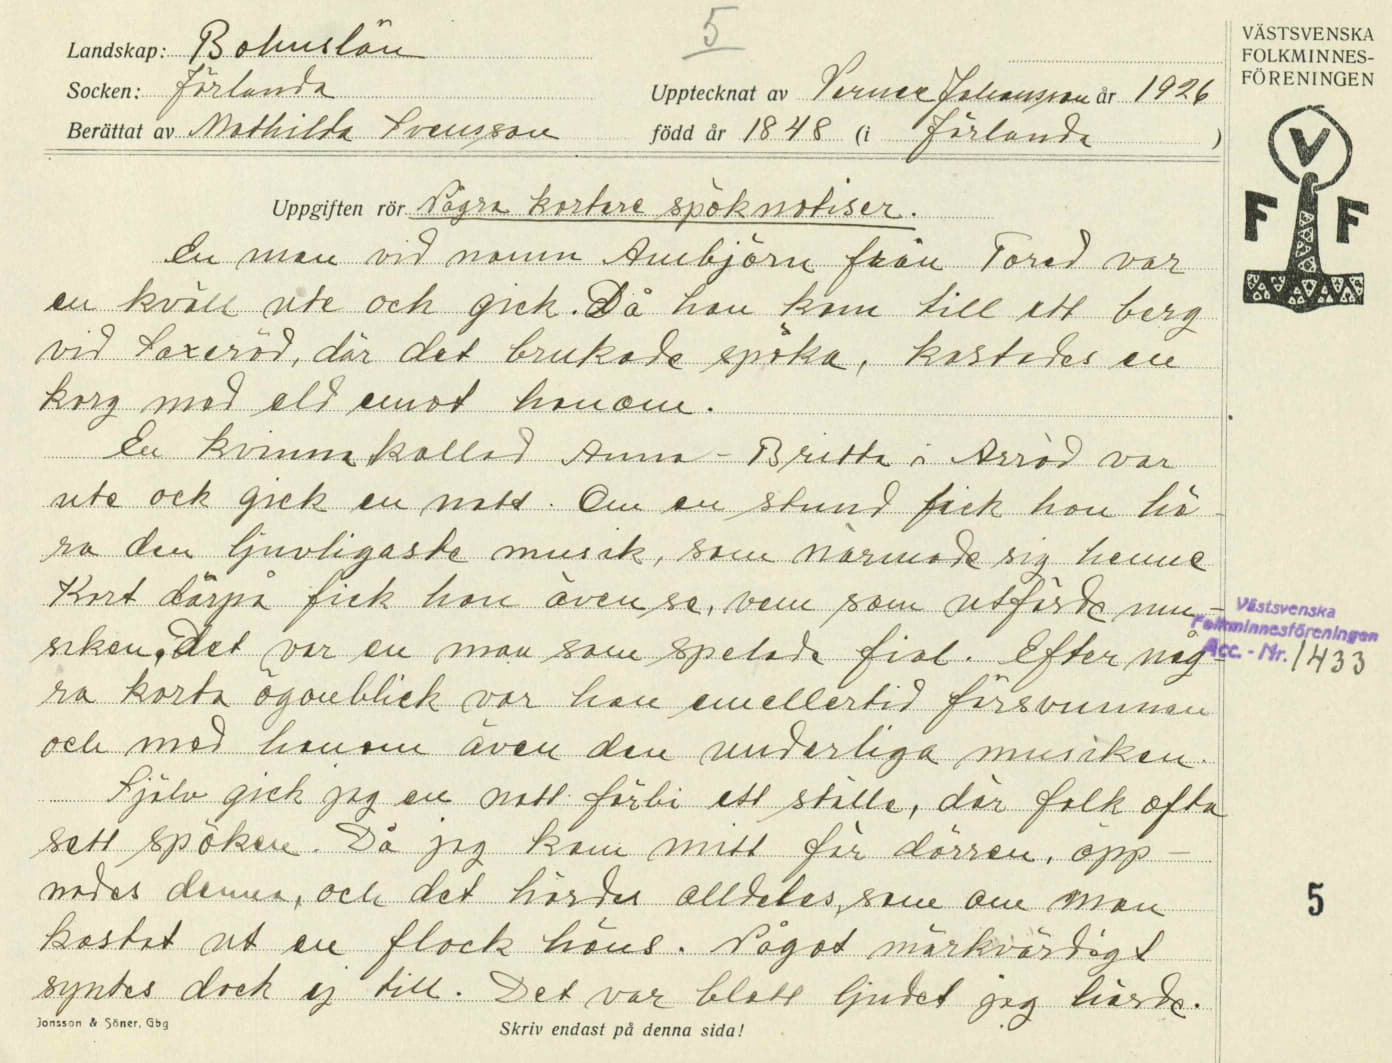 5
Landskap: Bohuslän
Socken: Förlanda
Upptecknat av Verner Johansson år 1926
Berättat av Mathilda Svensson
född år 1848 (i Förlanda)
VÄSTSVENSKA
FOLKMINNES-
FÖRENINGEN
V
F F
Uppgiften rör Några kortare spöknotiser.
En man vid namn Ambjörn från Tored var
en kväll ute och gick. Då han kom till ett berg
vid Saxeröd, där det brukade spöka, kastades en
korg med eld emot honom.
En kvinna kallad Anna-Britta i Arröd var
ute ock gick en natt. Om en stund fick hon hö-
ra den ljuvligaste musik, som närmade sig henne
Kort därpå fick hon även se, vem som utförde mu-
siken. Det var en man som spelade fiol. Efter någ-
ra korta ögonblick var han emellertid försvunnen
och med honom även den underliga musiken.
Själv gick jag en natt förbi ett ställe, där folk ofta
sett spöken. Då jag kom mitt för dörren, öpp-
nades denna, och det hördes alldeles, som om man
kastat ut en flock höns. Något märkvärdigt
syntes dock ej till. Det var blott ljudet jag hörde.
Västsvenska
Folkminnesföreningen
Acc.-Nr. 1433
5
Jonsson & Söner, Gbg
Skriv endast på denna sida!